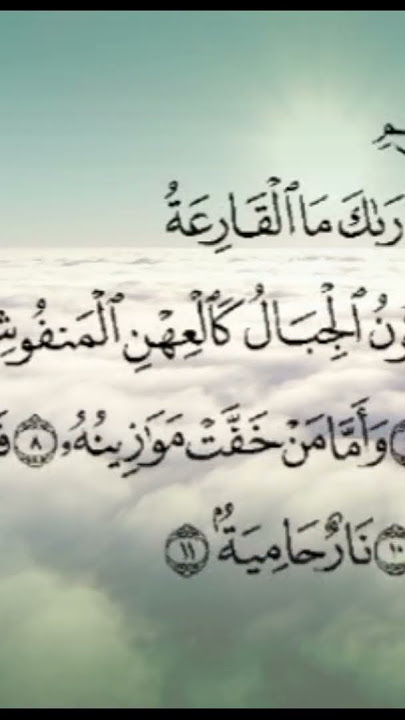 رَىٰكَ مَا ٱلْقَارِعَةُ
ونُ ٱلْجِبَالُ كَٱلْعِهْنِ ٱلْمَنفُوشِ
وَأَمَّا مَنْ خَفَّتْ مَوَٰزِينُهُۥ ٨
١٠ نَارٌ حَامِيَةٌۢ ١١